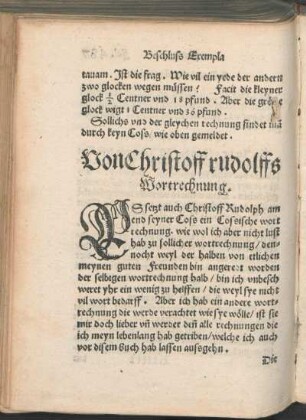 Beschluss Exempla
tauam. Ist die frag. Wie vil ein yede der andern
zwo glocken wegen müssen? Facit die kleyner
glock ½ Centner vnd 18 pfund. Aber die
glock wigt 1 Centner vnd 36 pfund.
Sollichs vnd der gleychen rechnung findet mā
durch keyn Coss/ wie oben gemeldet.
Von Christoff rudolffs
Wortrechnung.
ES setzt auch Christoff Rudolph am
end seyner Coss ein Cossische wort
rechnung. wie wol ich aber nicht lust
hab zu sollicher wortrechnung/ den-
nocht weyl der halben von etlichen
meynen guten Freunden bin angeredt worden
der selbigen wortrechnung halb/ bin ich vnbesch
weret yhr ein wenig zu helffen/ die weyl sye nicht
vil wort bedarff. Aber ich hab ein andere wort-
rechnung die werde verachtet wie sye wölle/ ist sie
mir doch lieber vñ werder deñ alle rechnungen die
ich meyn lebenlang hab getriben/ welche ich auch
vor disem buch hab lassen aussgehn.
Die